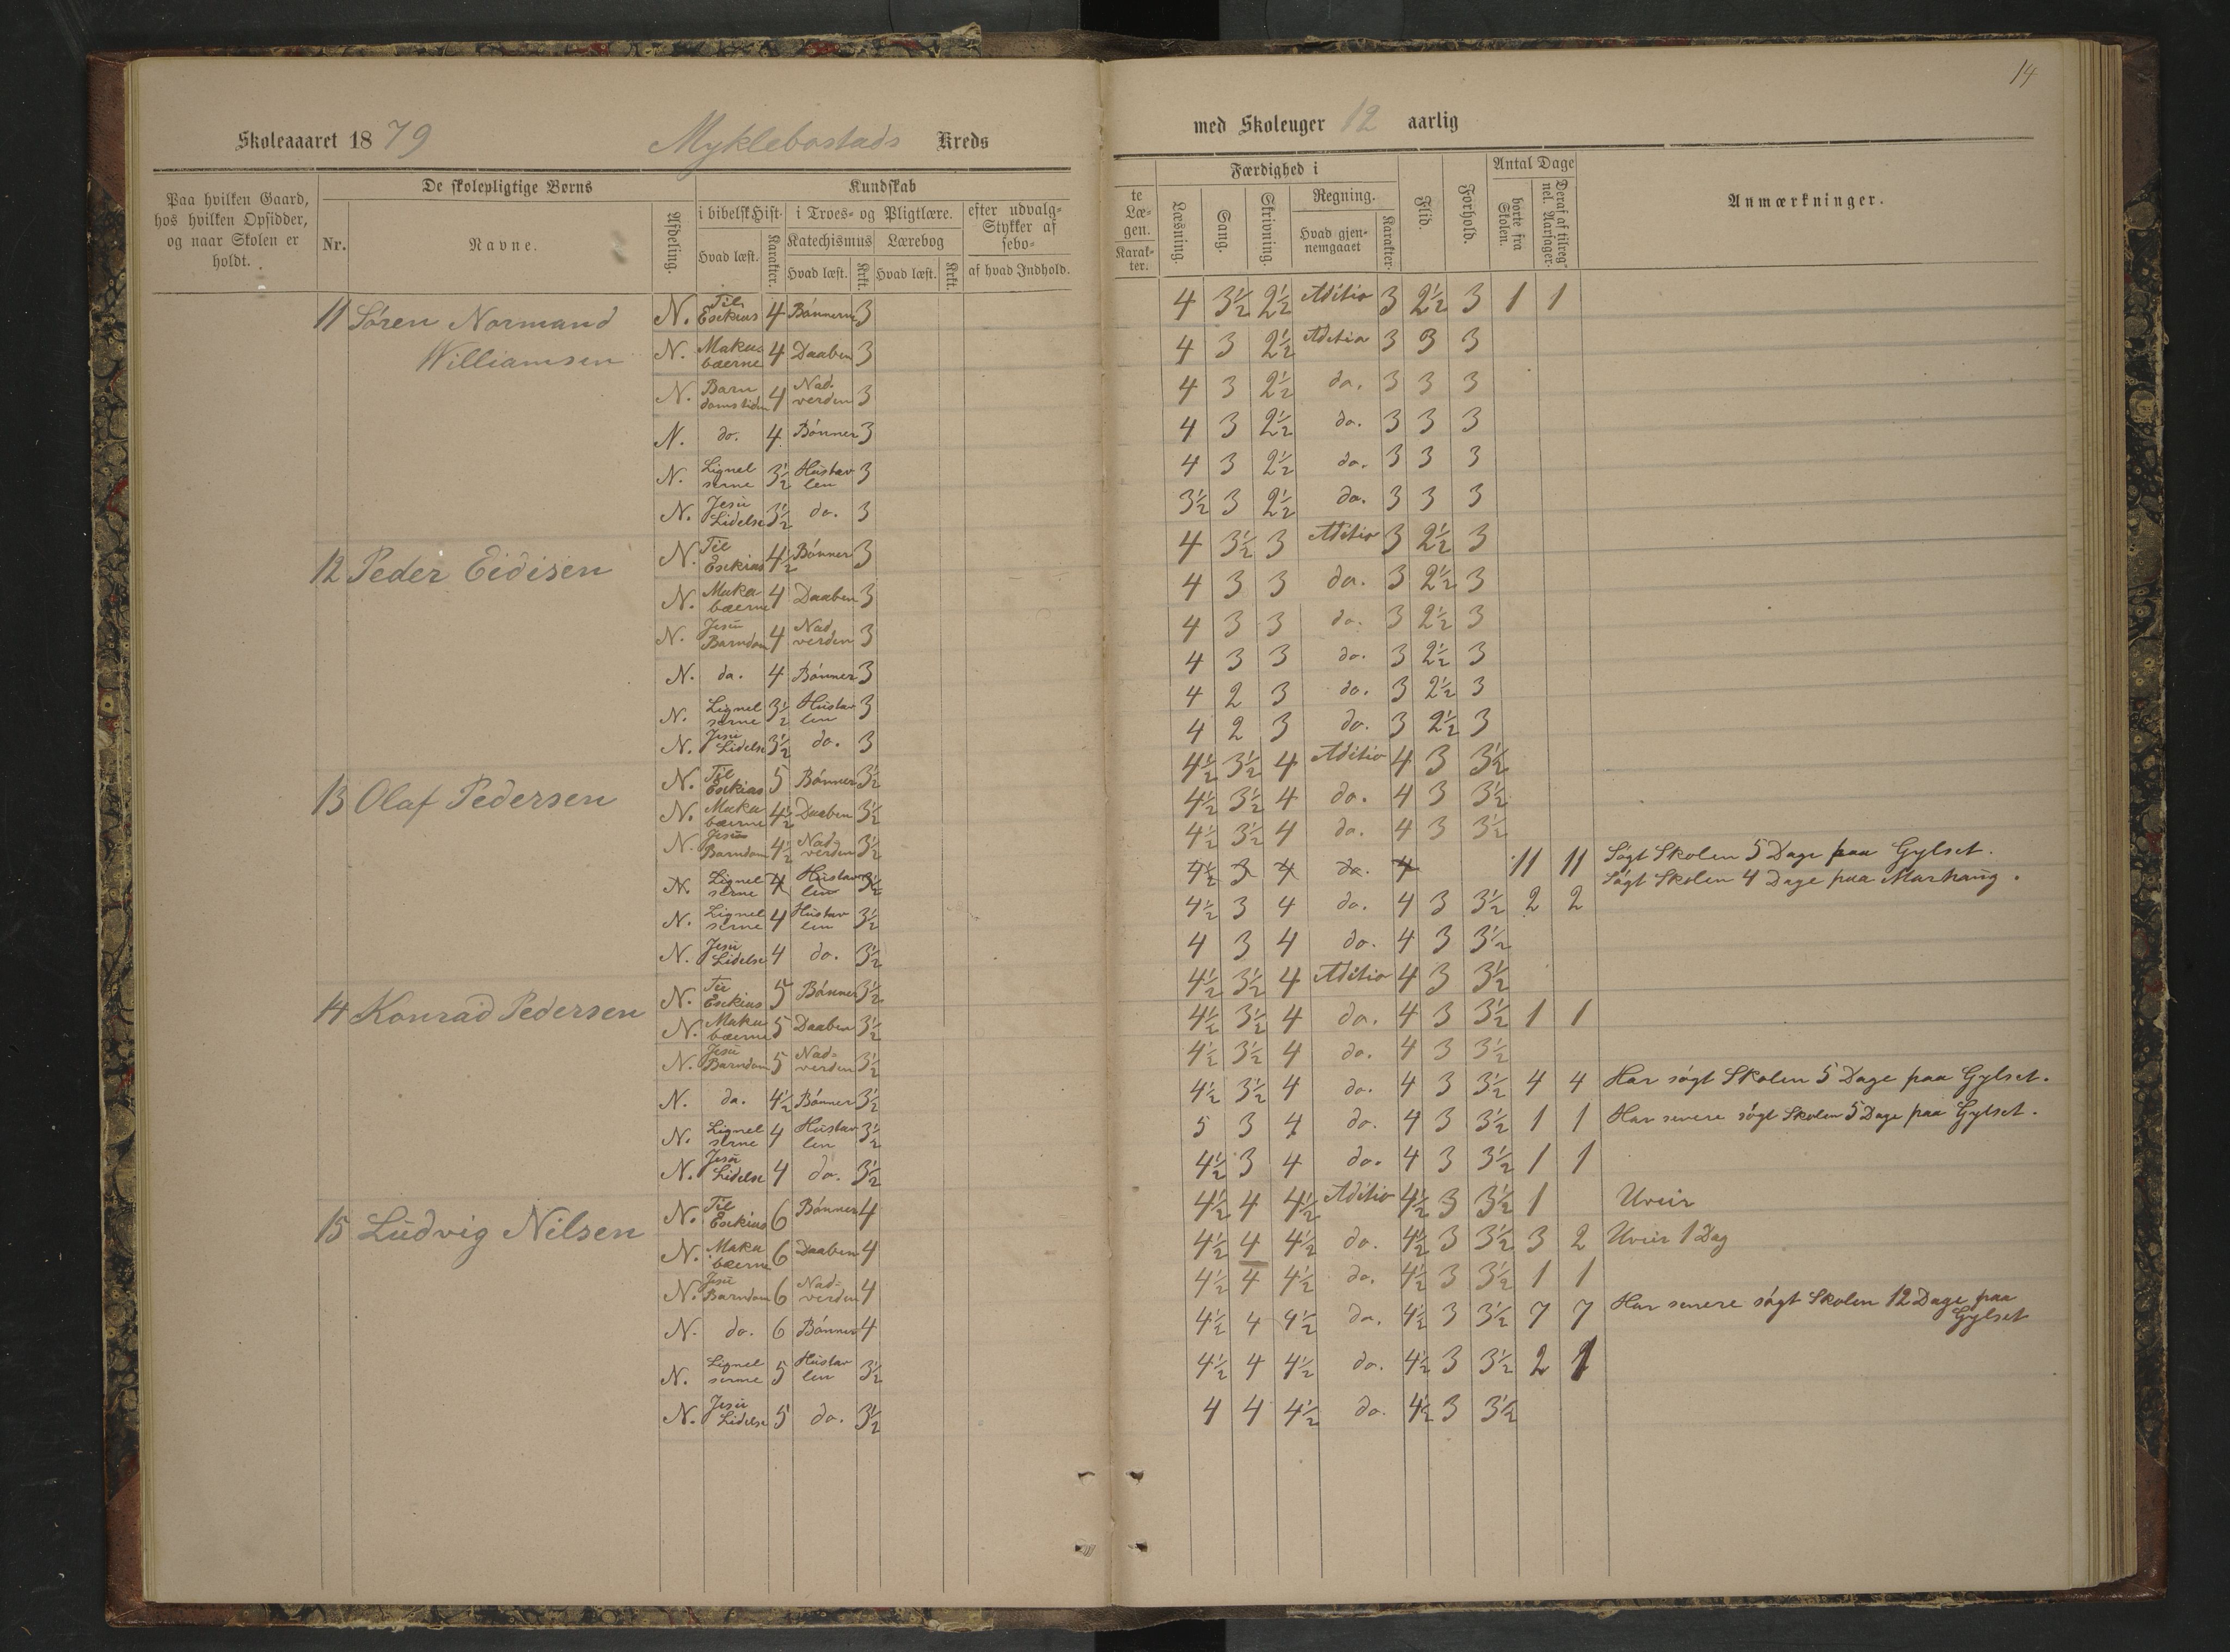 14
Skoleaaaret 1879 Myklebostads Kreds
med Skoleuger 12 aarlig
Paa hvilken Gaard, hos hvilken Opsidder, og naar Skolen er holdt.
De skolepligtige Børns
Nr.
Navne.
Afdeling.
Kundskab
i bibelsk Hist.
Hvad læst.
Karakter.
i Troes- og Pligtlære.
Katechismus
Hvad læst.
Krkt.
Lærebog
Hvad læst.
Krkt.
efter udvalg=
Stykker af
sebo=
af hvad Indhold.
te Læ-
gen.
Karak-
ter.
Færdighed i
Læsning.
Sang.
Skrivning.
Regning.
Hvad gjen-
nemgaaet
Karakter.
Flid.
Forhold.
Antal Dage
borte fra Skolen.
Deraf af tilreg-
nel. Aarsager.
Anmærkninger.
11 Søren Normand Williamsen
N. Til Esekias 4 Bønnerne 3 4 3½ 2½ Aditio 3 2½ 3 1 1
N. Makabæerne 4 Daaben 3 4 3 2½ Aditio 3 3 3
N. Barndomstiden 4 Nadverden 3 4 3 2½ do. 3 3 3
N. do. 4 Bønner 3 4 3 2½ do. 3 3 3
N. Lignelserne 3½ Hustavlen 3 4 3 2½ do. 3 3 3
N. Jesu Lidelse 3½ do. 3 3½ 3 2½ do. 3 3 3
12 Peder Eidisen
N. Til Esekias 4½ Bønner 3 4 3½ 3 Aditio 3 2½ 3
N. Makabæerne 4 Daaben 3 4 3 3 do. 3 2½ 3
N. Jesu Barndom 4 Nadverden 3 4 3 3 do. 3 2½ 3
N. do. 4 Bønner 3 4 3 3 do. 3 2½ 3
N. Lignelserne 3½ Hustavlen 3 4 2 3 do. 3 2½ 3
N. Jesu Lidelse 3½ do. 3 4 2 3 do. 3 2½ 3
13 Olaf Pedersen
N. Til Esekias 5 Bønner 3½ 4½ 3½ 4 Aditio 4 3 3½
N. Makabæerne 4½ Daaben 3½ 4½ 3½ 4 do. 4 3 3½
N. Jesus Barndom 4½ Nadverden 3½ 4½ 3½ 4 do. 4 3 3½
N. Lignelserne 4 Hustavlen 3½ 4½ 3 4 do. 4 11 11 Søgt Skolen 5 Dage paa Gylset.
Søgt Skolen 4 Dage paa Marhaug.
N. Lignelserne 4 Hustavlen 3½ 4½ 3 4 do. 4 3 3½ 2 2
N. Jesu Lidelse 4 do. 3½ 4 3 4 do. 4 3 3½
14 Konrad Pedersen
N. Til Esekias 5 Bønner 3½ 4½ 3½ 4 Aditio 4 3 3½
N. Makabæerne 5 Daaben 3½ 4½ 3½ 4 do. 4 3 3½ 1 1
N. Jesu Barndom 5 Nadverden 3½ 4½ 3½ 4 do. 4 3 3½
N. do. 4½ Bønner 3½ 4½ 3½ 4 do. 4 3 3½ 4 4 Har søgt Skolen 5 Dage paa Gylset.
N. Lignelserne 4 Hustavlen 3½ 5 3 4 do. 4 3 3½ 1 1 Har senere søgt Skolen 5 Dage paa Gylset.
N. Jesu Lidelse 4 do. 3½ 4½ 3 4 do. 4 3 3½ 1 1
15 Ludvig Nilsen
N. Til Esekias 6 Bønner 4 4½ 4 4½ Aditio 4½ 3 3½ 1 Uveir
N. Makabæerne 6 Daaben 4 4½ 4 4½ do. 4½ 3 3½ 3 2 Uveir 1 Dag
N. Jesu Barndom 6 Nadverden 4 4½ 4 4½ do. 4½ 3 3½ 1 1
N. do. 6 Bønner 4 4½ 4 4½ do. 4½ 3 3½ 7 7 Har senere søgt Skolen 12 Dage paa Gylset
N. Lignelserne 5 Hustavlen 3½ 4½ 4 4½ do. 4½ 3 3½ 2 1
N. Jesu Lidelse 5 do. 3½ 4 4 4½ do. 4½ 3 3½